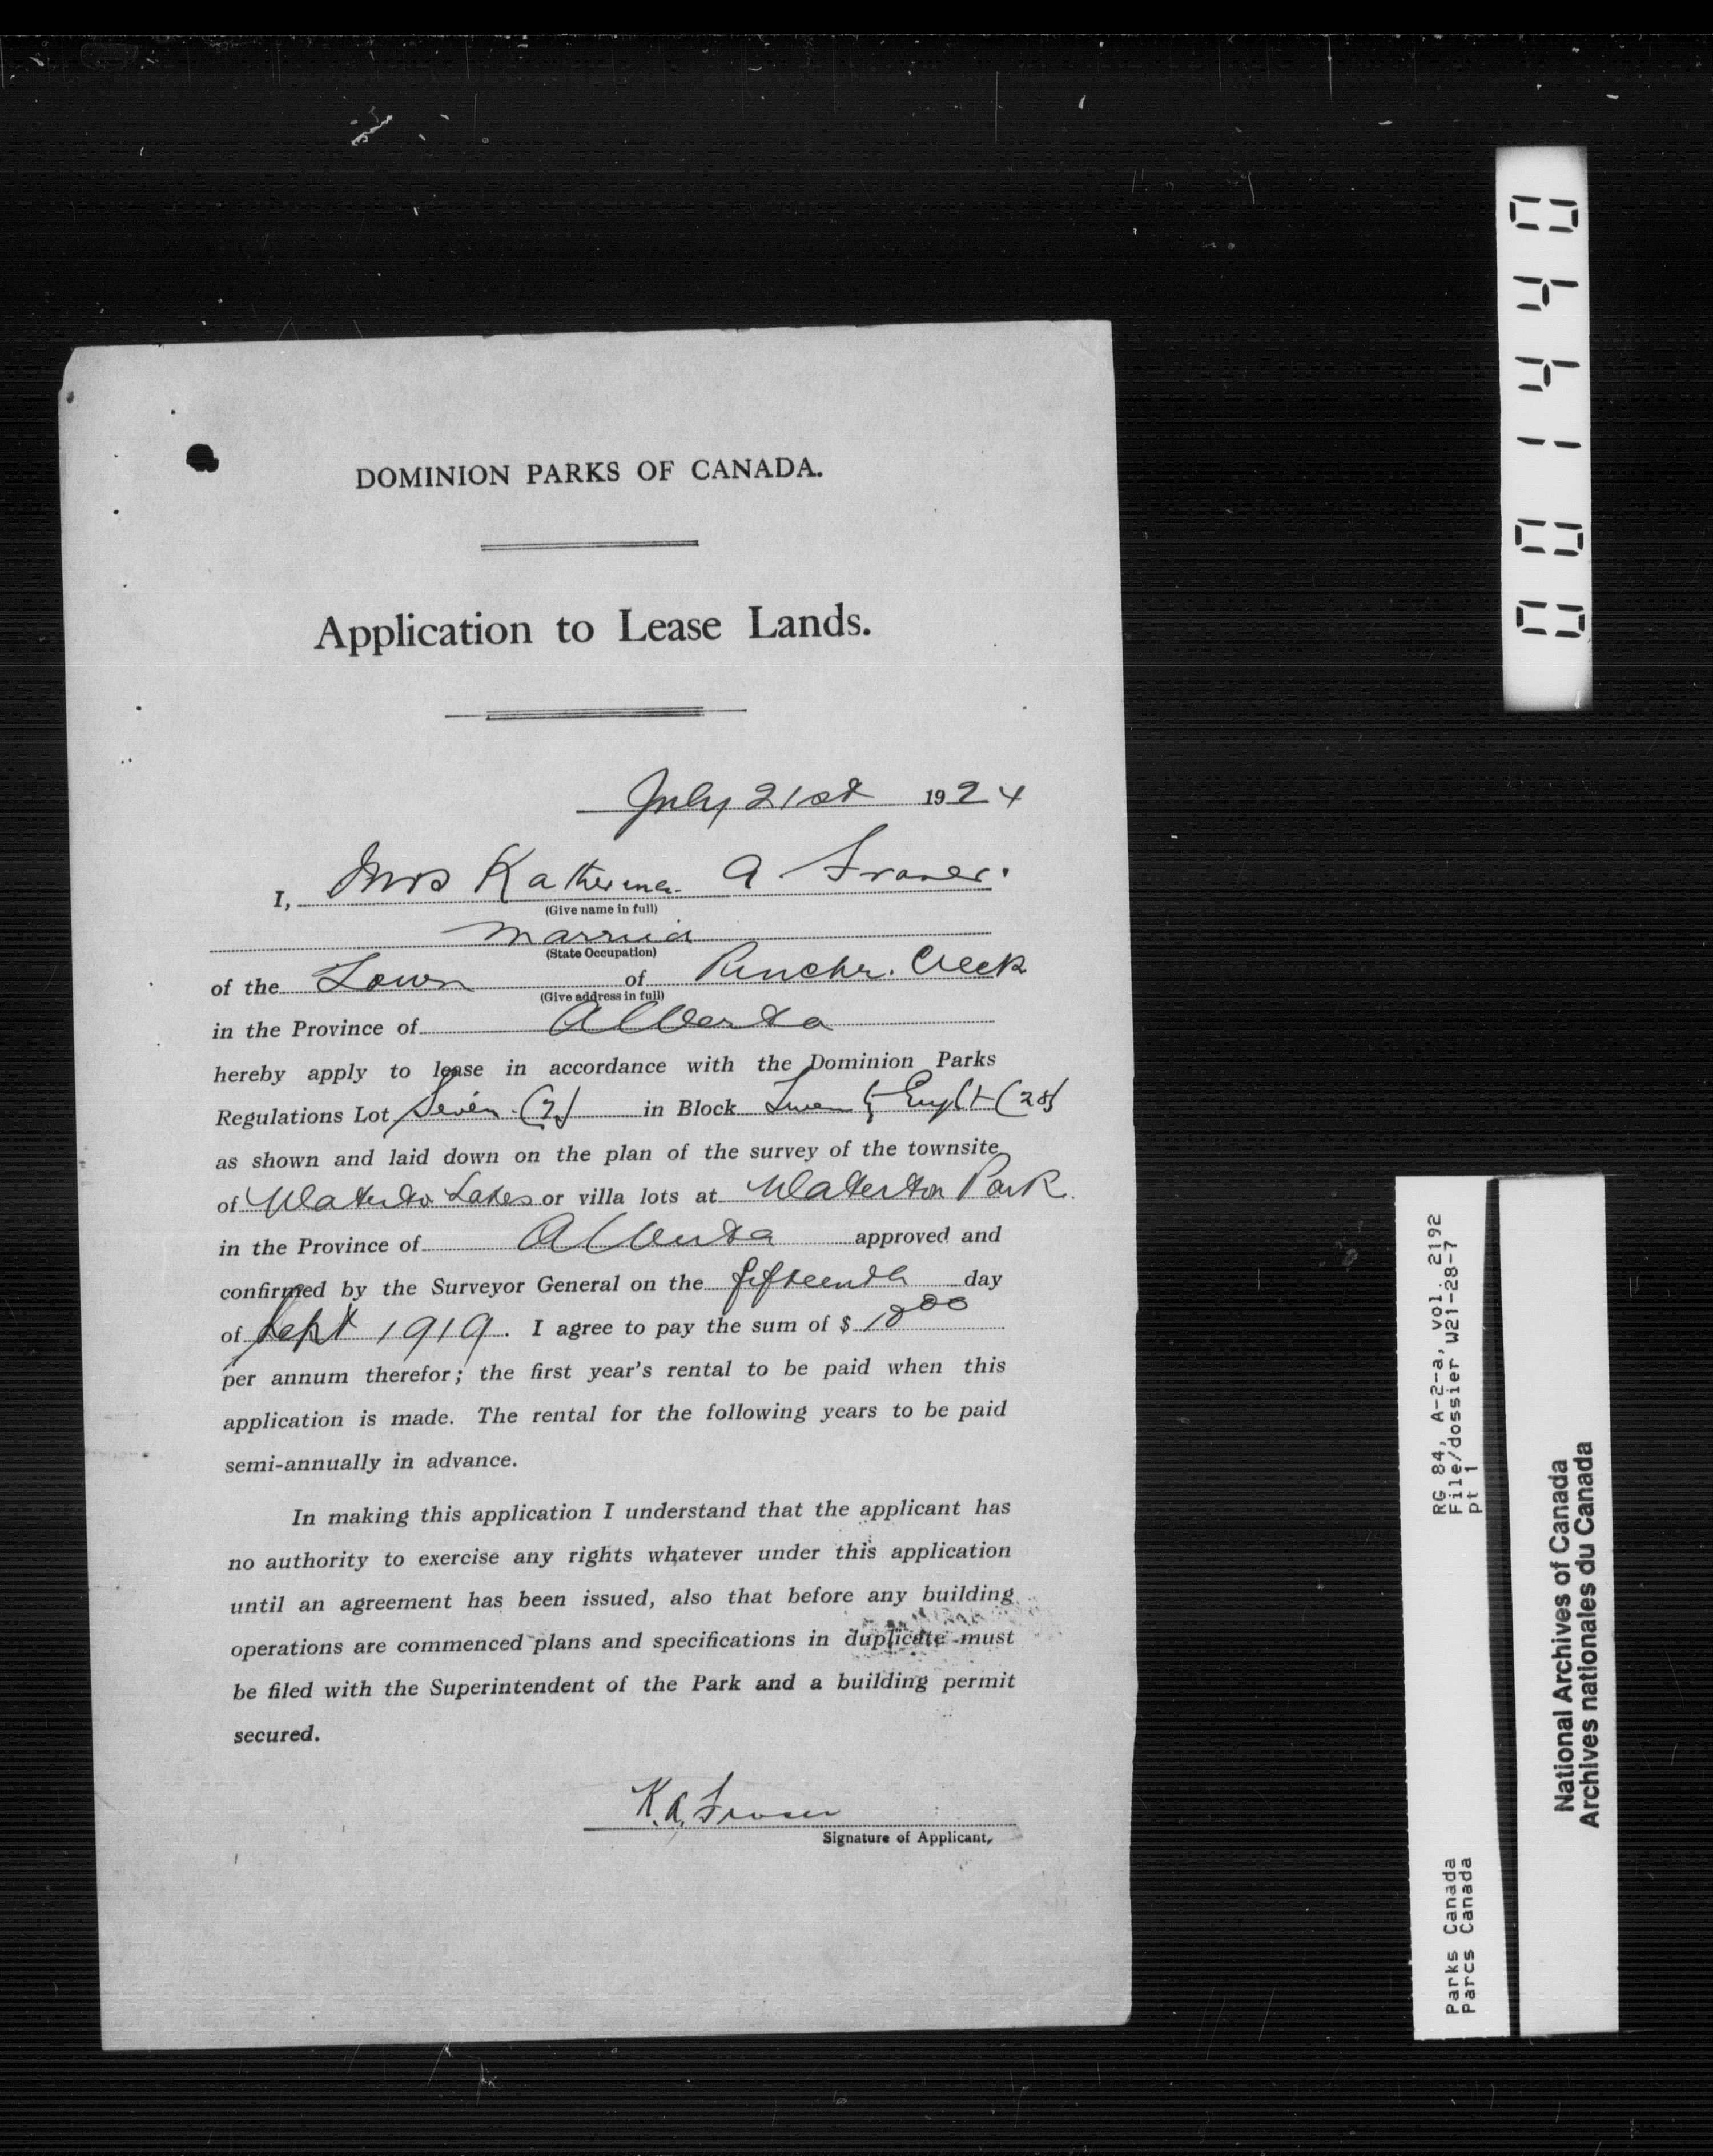 DOMINION PARKS OF CANADA.
Application to Lease Lands.
July 21st 1924
I, Mrs Katherine A Fraser.
(Give name in full)
Married
(State Occupation)
of the Town of Pincher Creek
(Give address in full)
in the Province of Alberta
hereby apply to lease in accordance with the Dominion Parks
Regulations Lot Seven (7) in Block Twenty Eight (28)
as shown and laid down on the plan of the survey of the townsite
of Waterton Lakes or villa lots at Waterton Park.
in the Province of Alberta approved and
confirmed by the Surveyor General on the fifteenth day
of Sept 1919. I agree to pay the sum of $
per annum therefor; the first year's rental to be paid when this
application is made. The rental for the following years to be paid
semi-annually in advance.
In making this application I understand that the applicant has
no authority to exercise any rights whatever under this application
until an agreement has been issued, also that before any building
operations are commenced plans and specifications in duplicate must
be filed with the Superintendent of the Park and a building permit
secured.
K. A. Fraser
Signature of Applicant,
001440
RG 84, A-2-a, vol. 2192
File/dossier W21-28-7
pt 1
Parks Canada
Parcs Canada
National Archives of Canada
Archives nationales du Canada